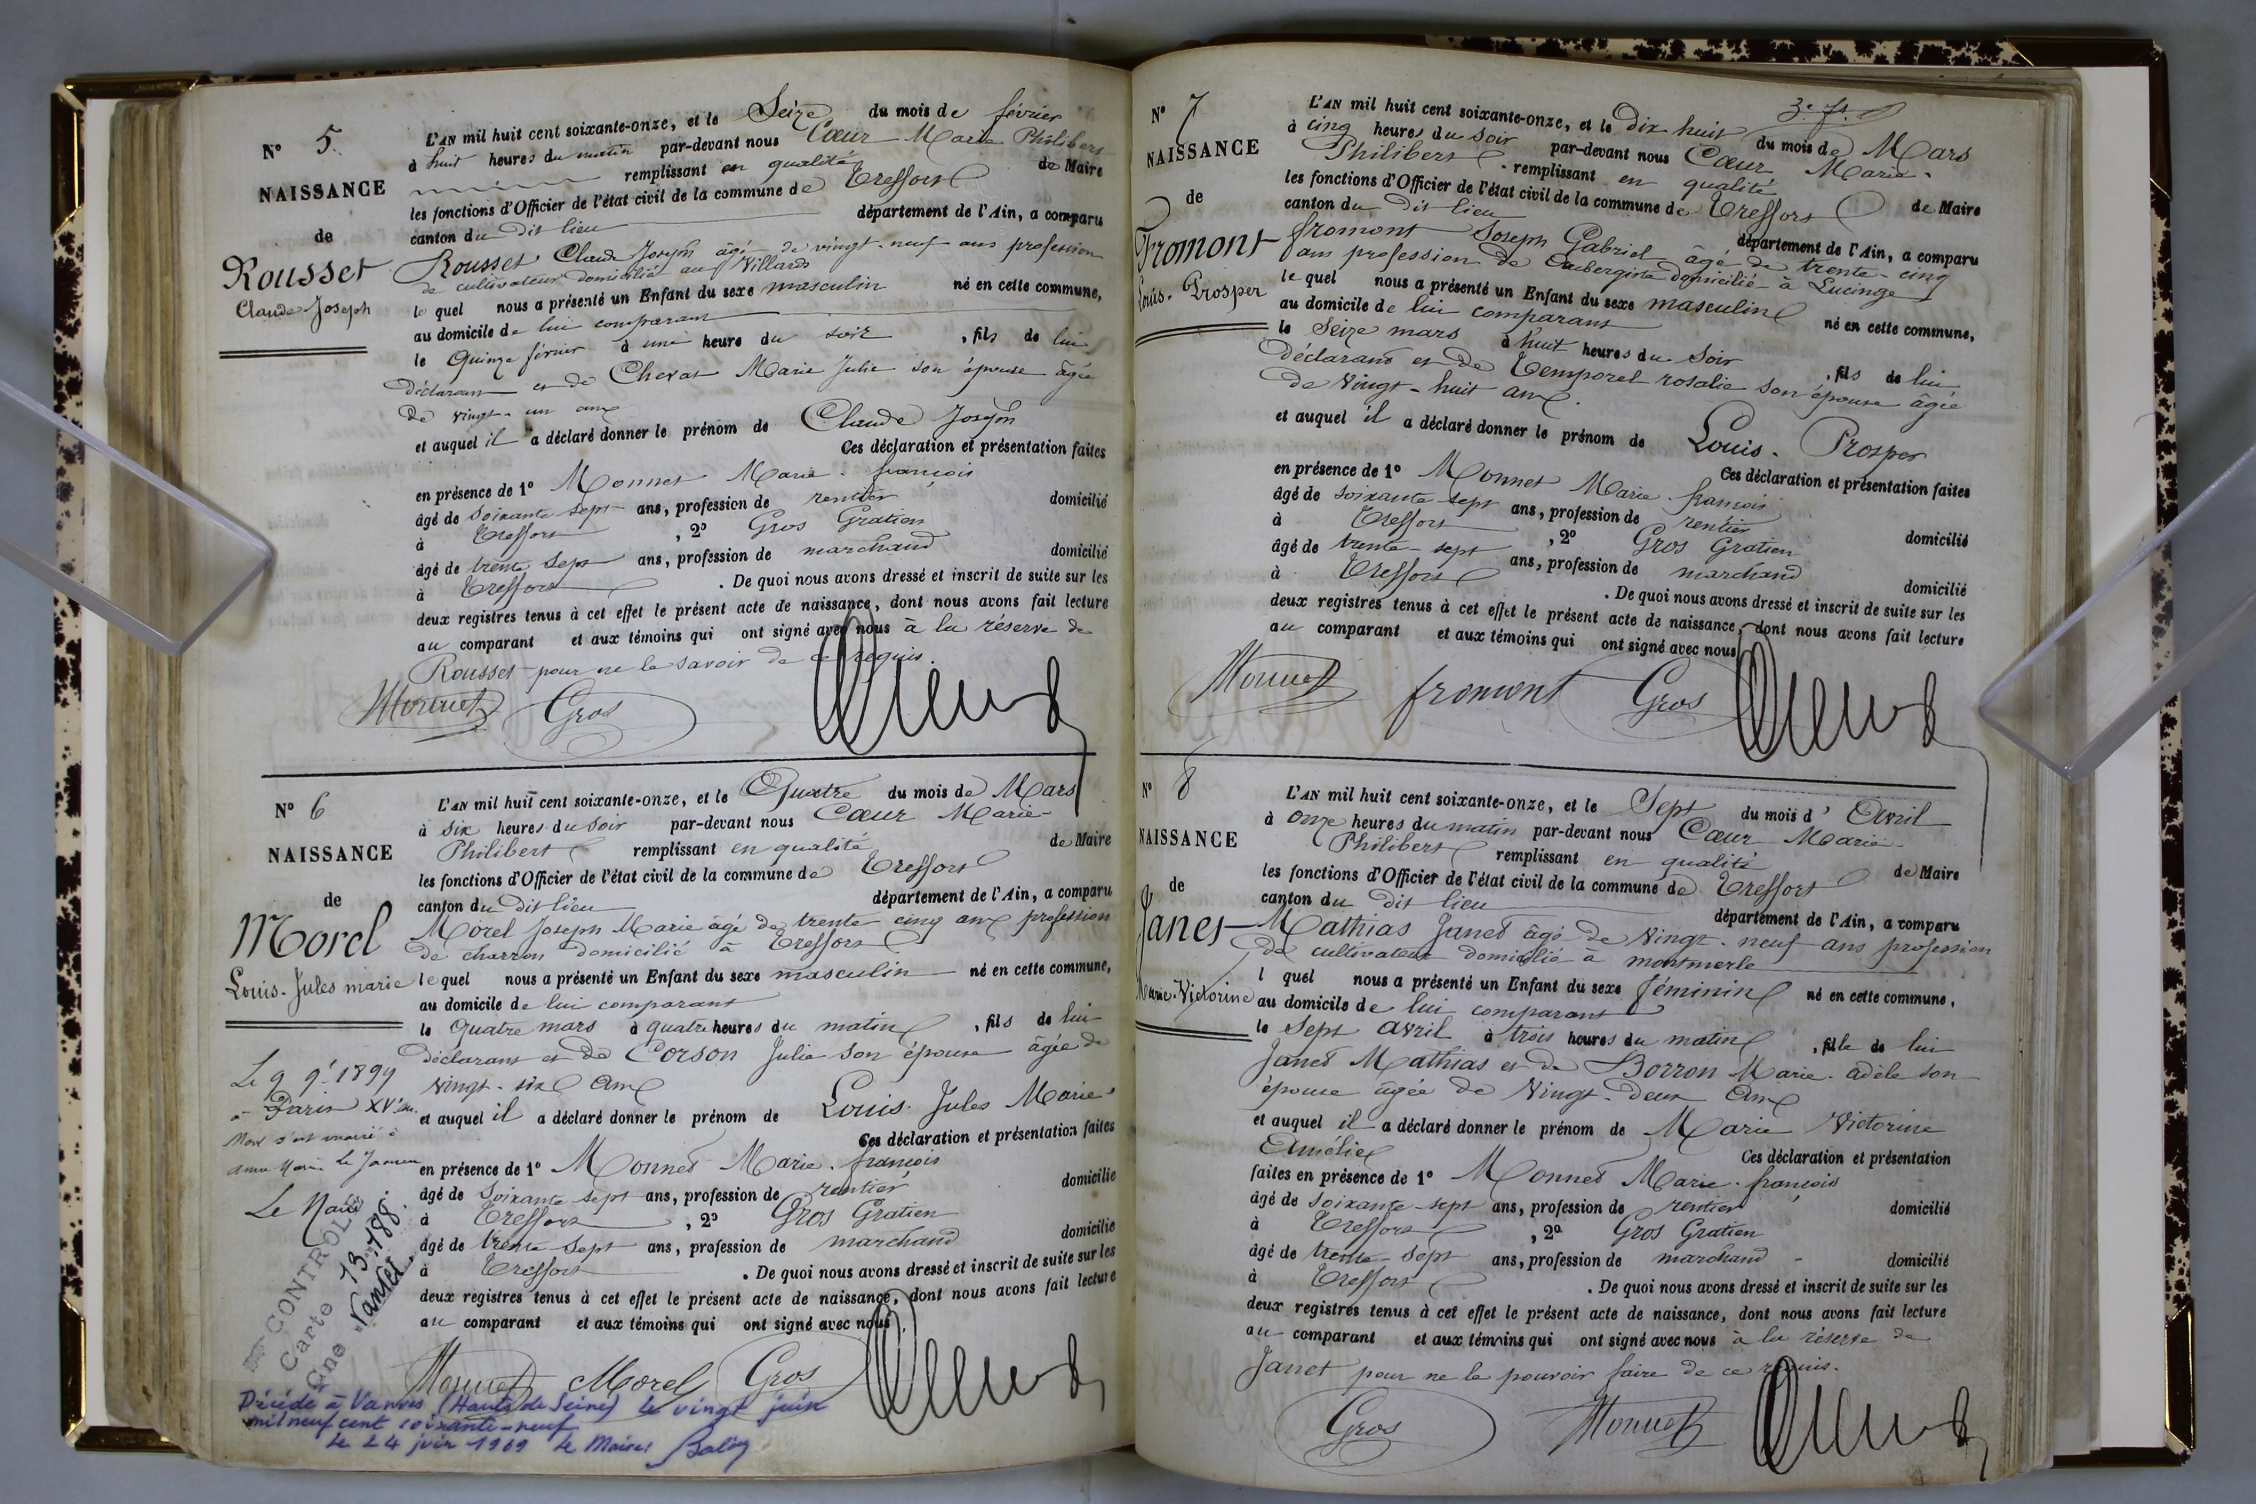 N° 5.
NAISSANCE
de
Rousset
Claude Joseph
L'AN mil huit cent soixante-onze, et le Seize du mois de février
à huit heures du matin par-devant nous Cœur Marie Philibert
remplissant en qualité de Maire
les fonctions d'Officier de l'état civil de la commune de Treffort
canton du dit lieu département de l'Ain, a comparu
Rousset Claude Joseph âgé de vingt-neuf ans profession
de cultivateur domicilié au Villards
le quel nous a présenté un Enfant du sexe masculin né en cette commune,
au domicile de lui comparant
le Quinze février à une heure du soir , fils de lui
déclarant et de Chevat Marie Julie son épouse âgée
de vingt-un ans
et auquel il a déclaré donner le prénom de Claude Joseph
Ces déclaration et présentation faites
en présence de 1° Monnet Marie. françois
âgé de soixante sept ans, profession de rentier domicilié
à Treffort , 2° Gros Gratien
âgé de trente sept ans, profession de marchand domicilié
à Treffort . De quoi nous avons dressé et inscrit de suite sur les
deux registres tenus à cet effet le présent acte de naissance, dont nous avons fait lecture
au comparant et aux témoins qui ont signé avec nous à la réserve de
Rousset pour ne le savoir de ce requis.
Monnet Gros
N° 6
NAISSANCE
de
Morel
Louis. Jules marie
L'AN mil huit cent soixante-onze, et le Quatre du mois de Mars
à six heures du soir par-devant nous Cœur Marie
Philibert remplissant en qualité de Maire
les fonctions d'Officier de l'état civil de la commune de Treffort
canton du dit lieu département de l'Ain, a comparu
Morel Joseph Marie âgé de trente cinq ans profession
de charron domicilié à Treffort
le quel nous a présenté un Enfant du sexe masculin né en cette commune,
au domicile de lui comparant
le Quatre mars à quatre heures du matin , fils de lui
déclarant et de Corson Julie son épouse âgée de
vingt-six ans
et auquel il a déclaré donner le prénom de Louis. Jules Marie
Ces déclaration et présentation faites
en présence de 1° Monnet Marie. françois
âgé de soixante sept ans, profession de rentier domicilié
à Treffort , 2° Gros Gratien
âgé de trente sept ans, profession de marchand domicilié
à Treffort . De quoi nous avons dressé et inscrit de suite sur les
deux registres tenus à cet effet le présent acte de naissance, dont nous avons fait lecture
au comparant et aux témoins qui ont signé avec nous.
Monnet Morel Gros
Le 9 9.e 1899
à Paris XV.e
Morel s'est marié à
Anne Marie Le
Le Maire
CONTROLE
Carte 13.188.
Cne Vanves
Décédé à Vanves (Hauts de Seine) le vingt juin
mil neuf cent soixante-neuf
Le 24 juin 1969 Le Maire:
N° 7
NAISSANCE
de
Fromont
Louis. Prosper
L'AN mil huit cent soixante-onze, et le Dix huit du mois de Mars
à cinq heures du soir par-devant nous Cœur Marie
Philibert remplissant en qualité de Maire
les fonctions d'Officier de l'état civil de la commune de Treffort
canton du dit lieu département de l'Ain, a comparu
fromont Joseph Gabriel âgé de trente-cinq
ans profession de aubergiste domicilié à Lucinge
le quel nous a présenté un Enfant du sexe masculin né en cette commune,
au domicile de lui comparant
le Seize mars à huit heures du soir , fils de lui
déclarant et de Temporel rosalie son épouse âgée
de vingt-huit ans.
et auquel il a déclaré donner le prénom de Louis. Prosper
Ces déclaration et présentation faites
en présence de 1° Monnet Marie. françois
âgé de soixante sept ans, profession de rentier domicilié
à Treffort , 2° Gros Gratien
âgé de trente-sept ans, profession de marchand domicilié
à Treffort . De quoi nous avons dressé et inscrit de suite sur les
deux registres tenus à cet effet le présent acte de naissance, dont nous avons fait lecture
au comparant et aux témoins qui ont signé avec nous
Monnet fromont Gros
N° 8
NAISSANCE
de
Janet
Marie-Victorine
L'AN mil huit cent soixante-onze, et le Sept du mois d'Avril
à onze heures du matin par-devant nous Cœur Marie
Philibert remplissant en qualité de Maire
les fonctions d'Officier de l'état civil de la commune de Treffort
canton du dit lieu département de l'Ain, a comparu
Mathias Janet âgé de vingt-neuf ans profession
de cultivateur domicilié à montmerle
l quel nous a présenté un Enfant du sexe féminin né en cette commune,
au domicile de lui comparant
le Sept avril à trois heures du matin , fille de lui
Janet Mathias et de Borron Marie. adèle son
épouse âgée de vingt-deux ans
et auquel il a déclaré donner le prénom de Marie Victorine
Amélie Ces déclaration et présentation
faites en présence de 1° Monnet Marie. françois
âgé de soixante-sept ans, profession de rentier domicilié
à Treffort , 2° Gros Gratien
âgé de trente-sept ans, profession de marchand domicilié
à Treffort . De quoi nous avons dressé et inscrit de suite sur les
deux registres tenus à cet effet le présent acte de naissance, dont nous avons fait lecture
au comparant et aux témoins qui ont signé avec nous à la réserve de
Janet pour ne le pouvoir faire de ce requis.
Gros Monnet